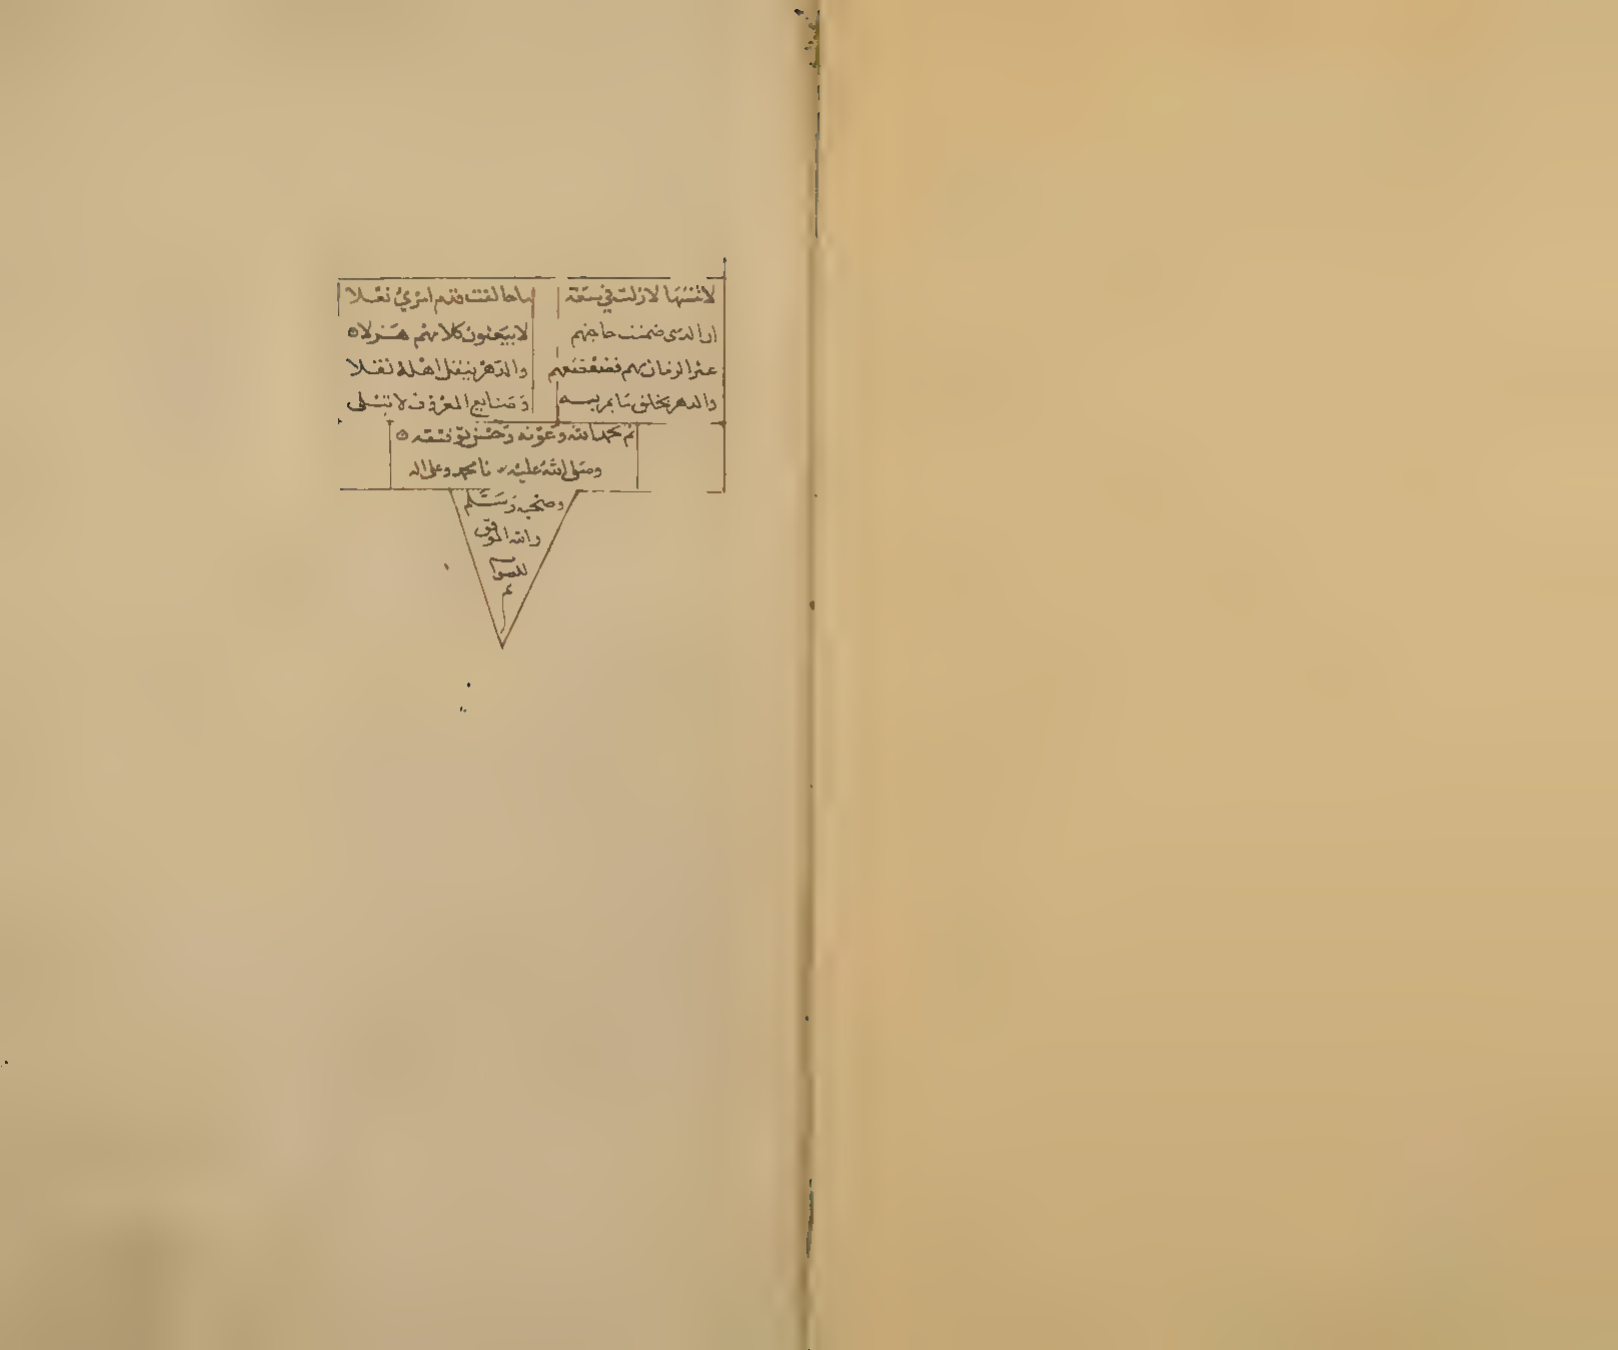 لا زلت في سعة ما حالفت قدم امرئ نعلا
ان الذى ضمنت حاجتهم لا يتبعون كلامهم هزلا
عثر الزمان بهم فضعضعهم والدهر ينقل اهله نقلا
والدهر يخلق ما يمر به وصنايع المعروف لا تبلى
تم بحمد الله وعونه وحسن توفيقه
وصلى الله على سيدنا محمد وعلى اله
وصحبه وسلم
والله الموفق
للصواب
تم